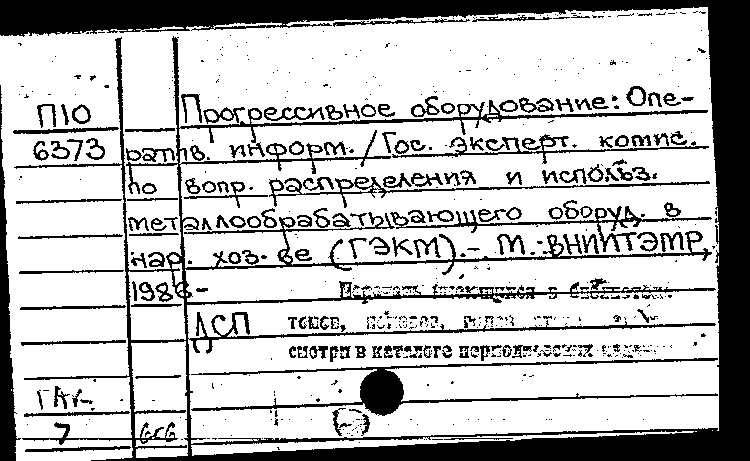 П10 Прогрессивное оборудование: Опе-
6373 ратив. информ. / Гос. эксперт. комис.
по вопр. распределения и использ.
металлообрабатывающего оборуд. в
нар. хоз-ве (ГЭКМ).- М.: ВНИИТЭМР,
1986-
Перечень имеющихся в библиотеке
ДСП томов, номеров, годов
смотри в каталоге периодических
ГАК-
7